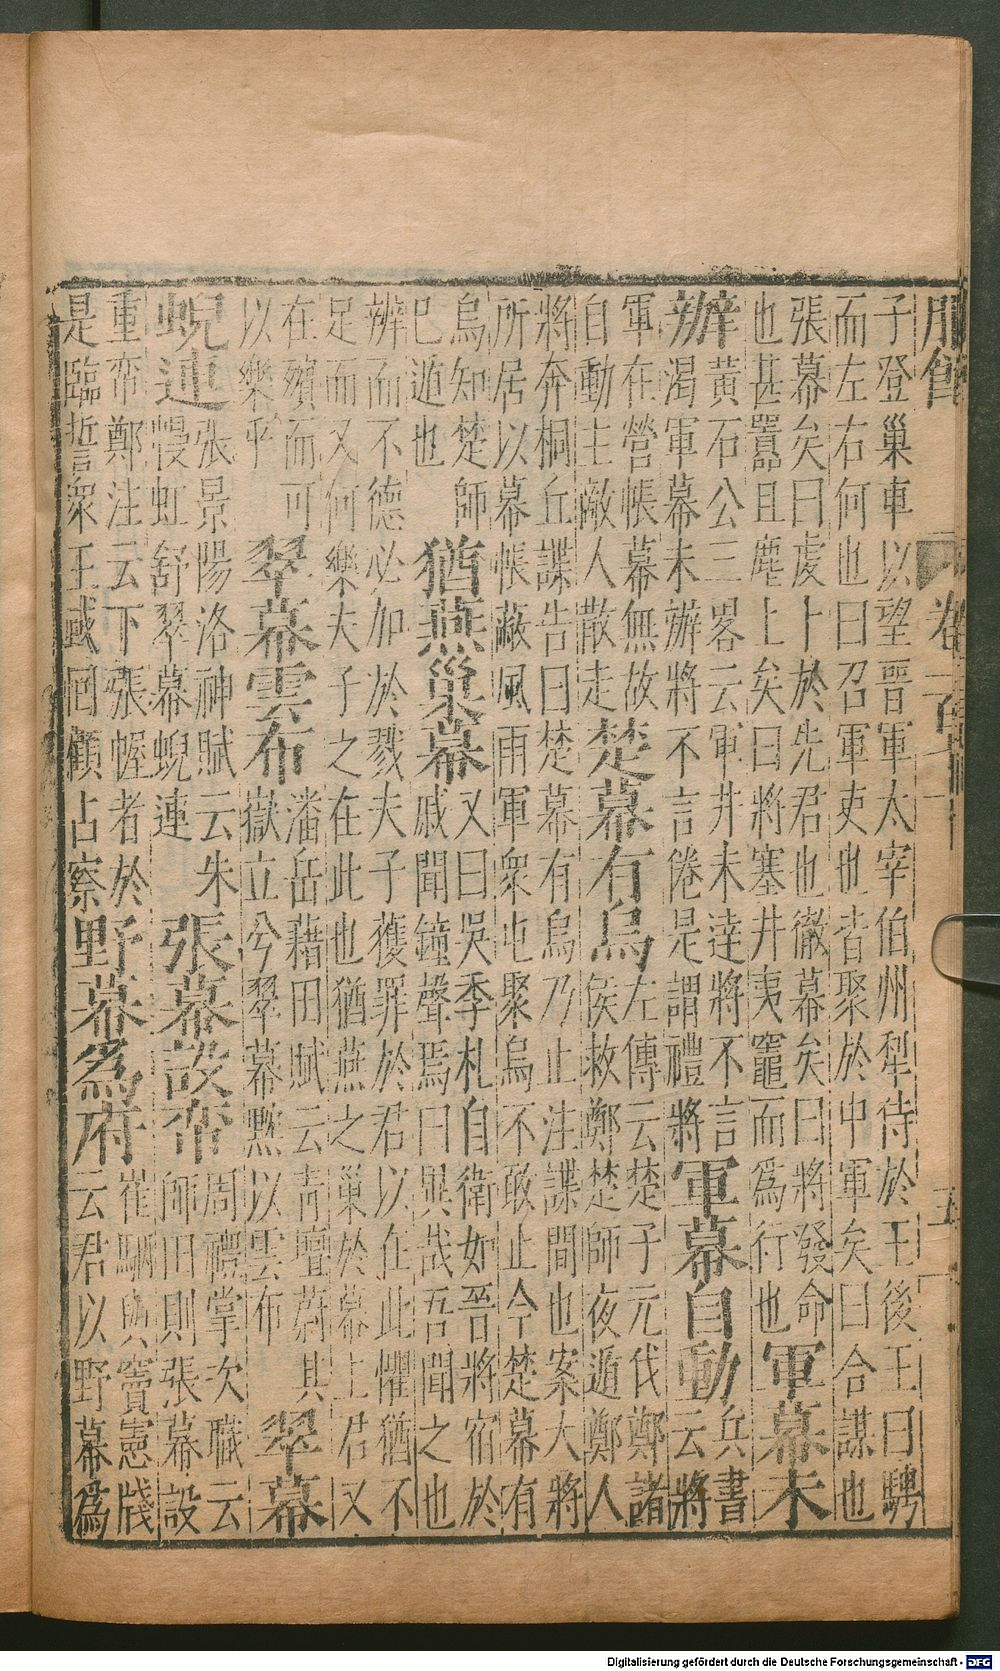 服飾
卷一百
五
子登巢車以望晉軍太宰伯州犁侍於王後王曰騁
而左右何也曰召軍吏也皆聚於中軍矣曰合謀也
張幕矣曰虔卜於先君也徹幕矣曰將發命
也甚囂且塵上矣曰將塞井夷竈而爲行也
軍幕未
辦
黃石公三畧云軍井未達將不言
渴軍幕未辦將不言倦是謂禮將
軍幕自動
兵書
云將
軍在營帳幕無故
自動主敵人散走
楚幕有烏
左傳云楚子元伐鄭諸
侯救鄭楚師夜遁鄭人
將奔桐丘諜告曰楚幕有烏乃止注諜間也案大將
所居以幕帳蔽風雨軍衆屯聚烏不敢止今楚幕有
烏知楚師
巳遁也
猶燕巢幕
又曰吳季札自衛如晉將宿於
戚聞鐘聲焉曰異哉吾聞之也
辨而不德必加於戮夫子獲罪於君以在此懼猶不
足而又何樂夫子之在此也猶燕之巢於幕上君又
在殯而可
以樂乎
翠幕雲布
潘岳藉田賦云青壇蔚其
嶽立兮翠幕黕以雲布
翠幕
蜺連
張景陽洛神賦云朱
幔虹舒翠幕蜺連
張幕設帟
周禮掌次職云
師田則張幕設
重帟鄭注云下張幄者於
是臨誓衆王或囘顧占察
野幕爲府
崔駰與竇憲牋
云君以野幕爲
Digitalisierung gefördert durch die Deutsche Forschungsgemeinschaft - DFG